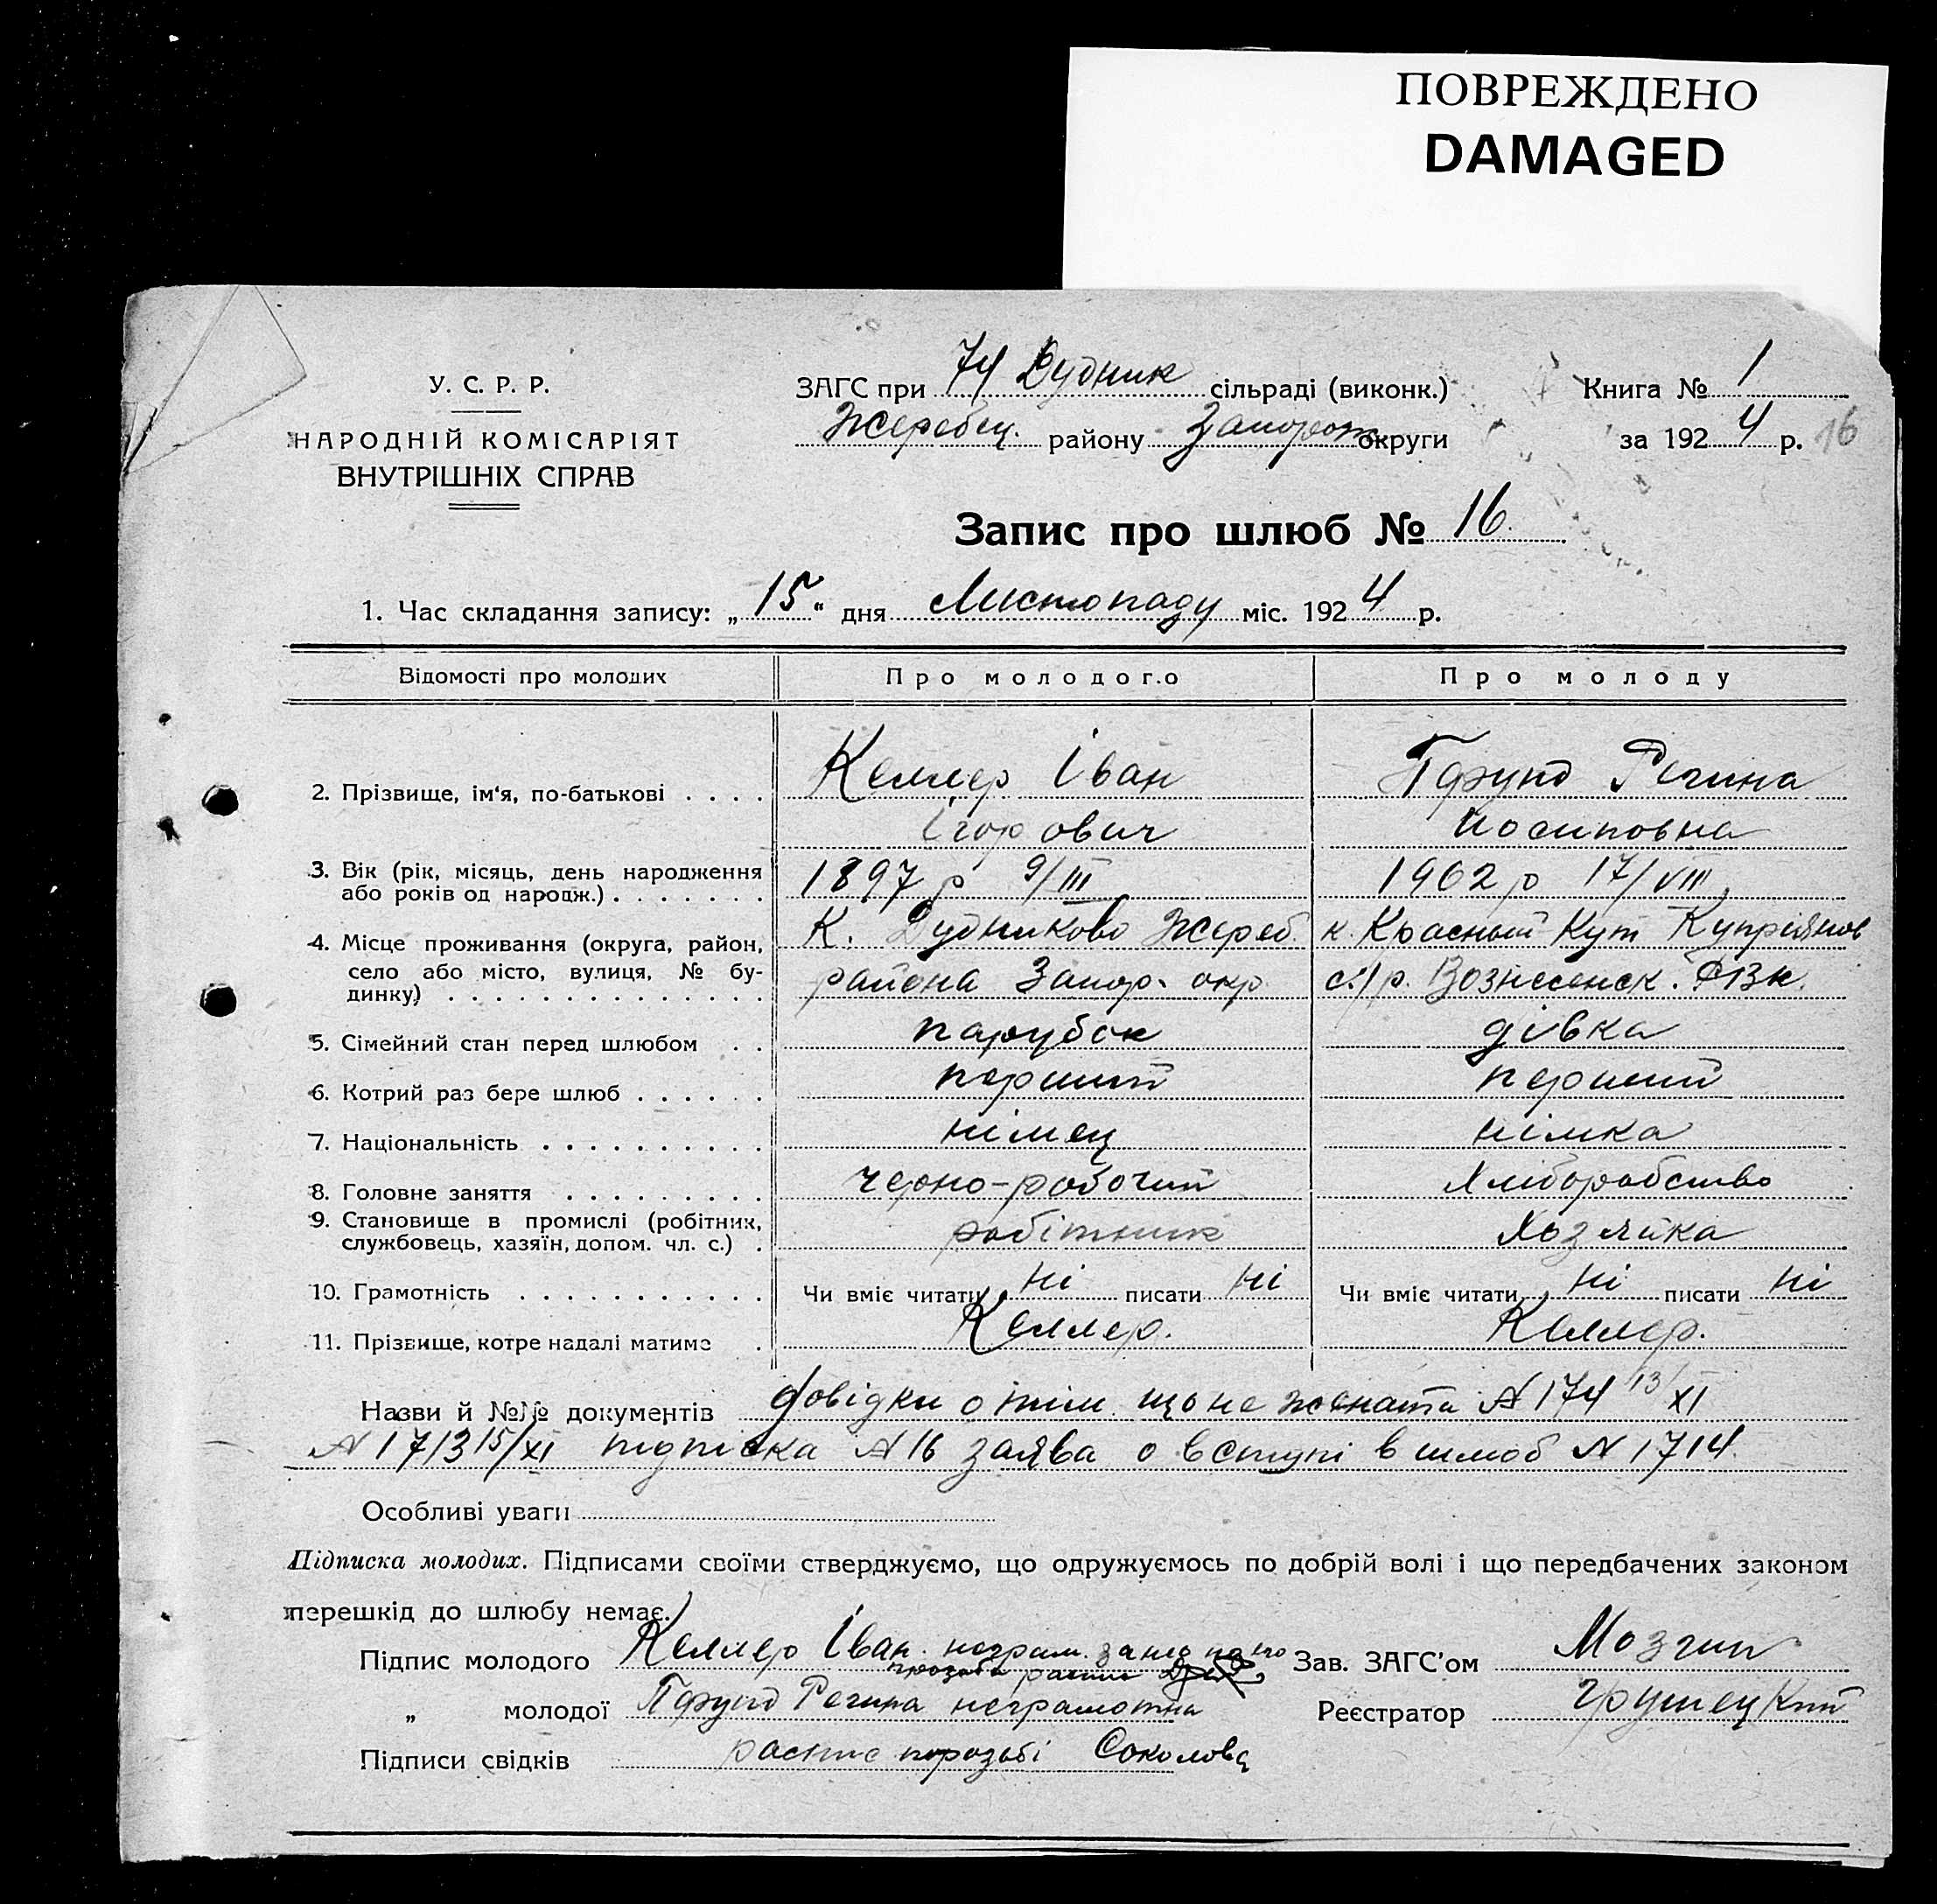 ПОВРЕЖДЕНО
DAMAGED
У. С. Р. Р.
НАРОДНІЙ КОМІСАРІЯТ
ВНУТРІШНІХ СПРАВ
ЗАГС при 74 Дудник сільраді (виконк.)
Жеребец. району Запорож округи
Книга № 1
за 1924 р. 16
Запис про шлюб № 16
1. Час складання запису: „15“ дня Листопаду міс. 1924 р.
Відомості про молодих Про молодого Про молоду
2. Прізвище, ім‘я, по-батькові . . . . Келлер Іван Пфунд Регина
Ігорович Йосиповна
3. Вік (рік, місяць, день народження
або років од народж.) . . . . . . . 1897 р 9/III 1902 р 17/VIII
4. Місце проживання (округа, район, К. Дудниково Жереб. к. Красный Кут Купріянов
село або місто, вулиця, № бу-
динку) . . . . . . . . . . . . . . района Запор. окр с./р. Вознесенск. РВК.
5. Сімейний стан перед шлюбом . . парубок дівка
6. Котрий раз бере шлюб . . . . . . перший перший
7. Національність . . . . . . . . . . німец німка
8. Головне заняття . . . . . . . . . черно-рабочий Хліборобство
9. Становище в промислі (робітник,
службовець, хазяїн, допом. чл. с.) . робітник Хозяйка
10. Грамотність . . . . . . . . . . . Чи вміє читати ні писати ні Чи вміє читати ні писати ні
11. Прізвище, котре надалі матиме . Келлер. Келлер.
Назви й №№ документів довідки о тім що не жената N 174 13/XI
N 1713 15/XI підписка N 16 заява о вступі в шлюб N 1714.
Особливі уваги
Підписка молодих. Підписами своїми стверджуємо, що одружуємось по добрій волі і що передбачених законом
перешкід до шлюбу немає.
Підпис молодого Келлер Іван неграм. за него на его
прозьби распис
Зав. ЗАГС’ом Мозгин
„ молодої Пфунд Регина неграмотна Реєстратор
Підписи свідків распис порозьбі Соколова